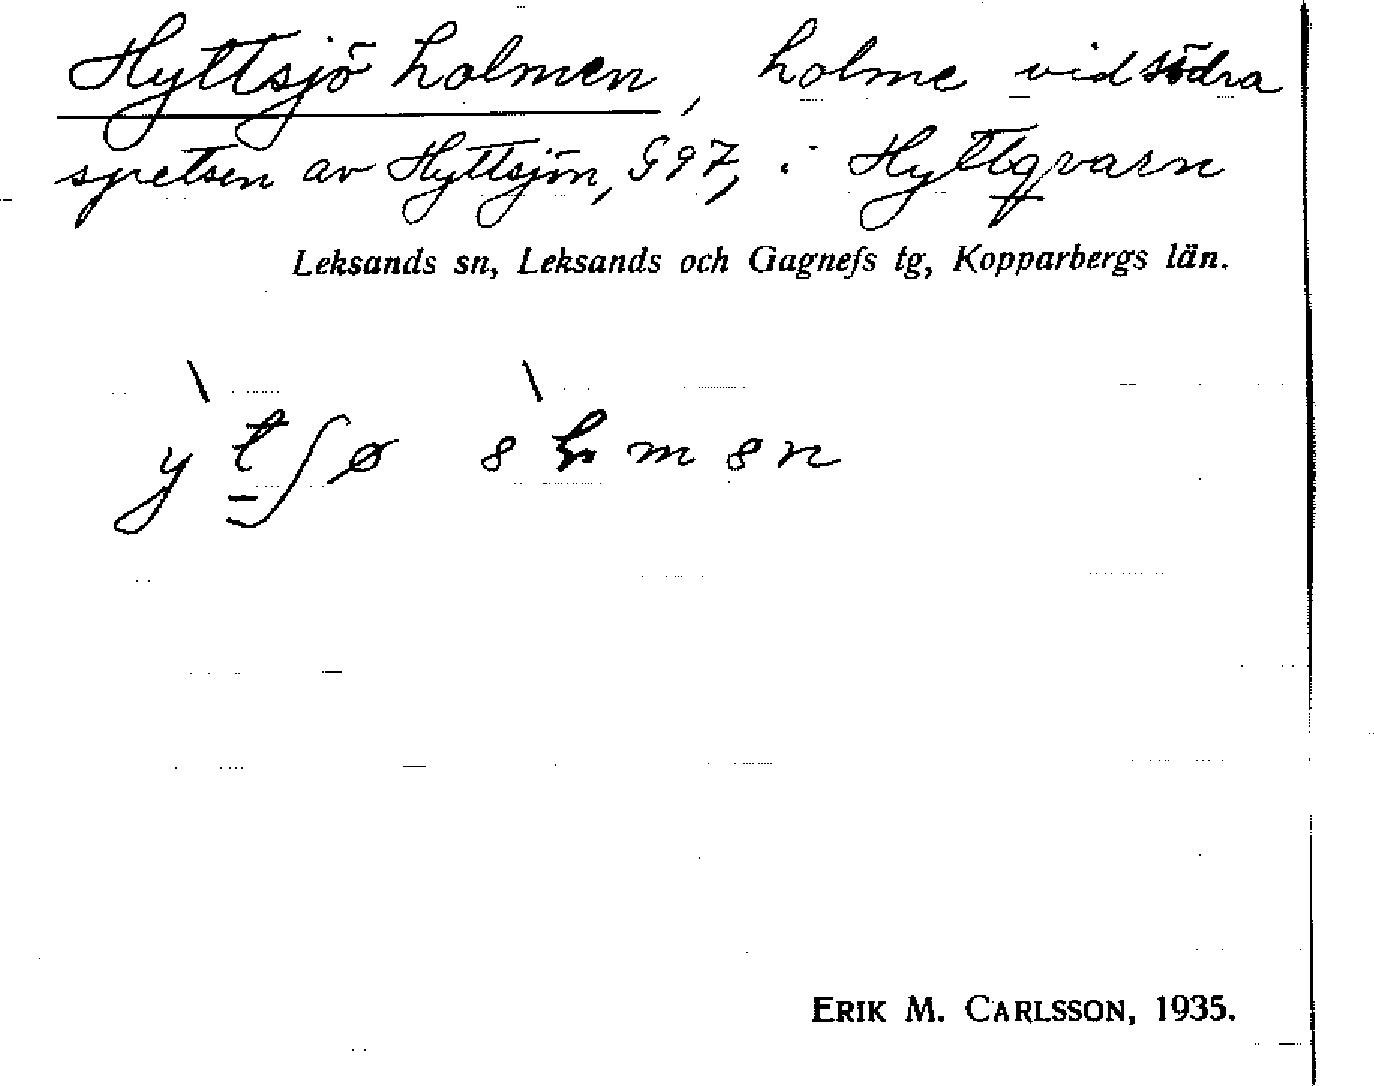 Hyttsjöholmen, holme vid södra
spetsen av Hyttsjön, G 97, i Hyttqvarn
Leksands sn, Leksands och Gagnefs tg, Kopparbergs län.
ERIK M. CARLSSON, 1935.